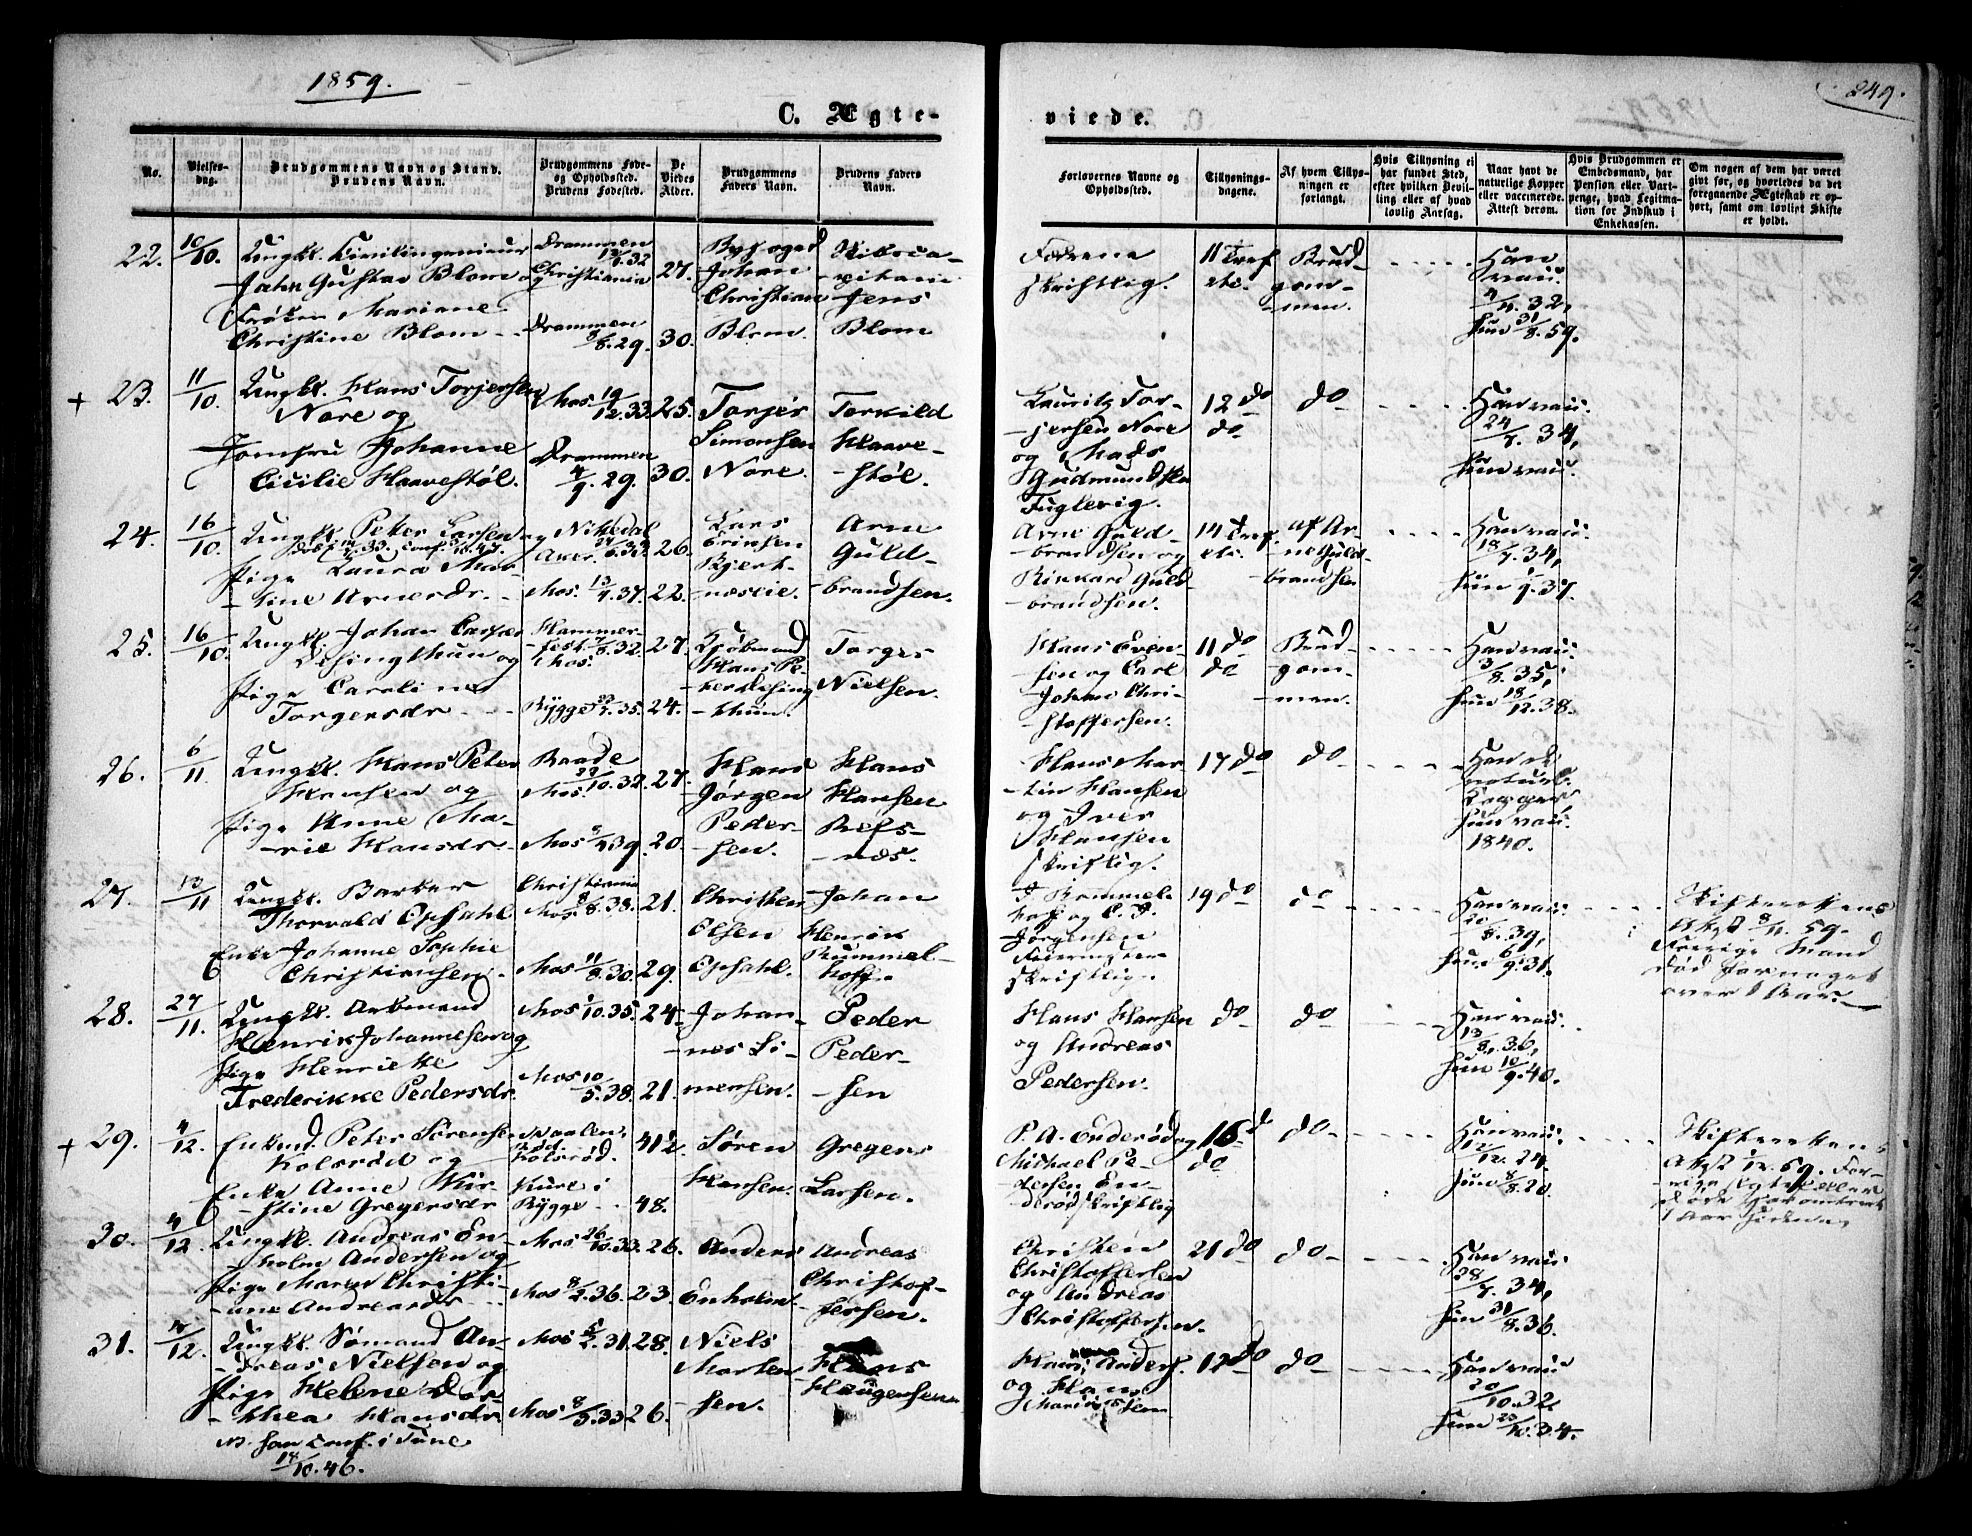 1859.
249.
C. Ægte-
viede.
No.
Vielses-
dag.
Brudgommens Navn og Stand.
Brudens Navn.
Brudgommens Føde-
og Opholdssted.
Brudens Fødested.
De
Viedes
Alder.
Brudgommens
Faders Navn.
Brudens Faders
Navn.
Forlovernes Navne og
Opholdssted.
Tillysnings-
dagene.
Af hvem Tillys-
ningen er
forlangt.
Hvis Tillysning ei
har fundet Sted,
efter hvilken Bevil-
ling eller af hvad
lovlig Aarsag.
Naar havt de
naturlige Kopper
eller vaccinerede.
Attest derom.
Hvis Brudgommen er
Embedsmand, har
Pension eller Vart-
penge, hvad Legitima-
tion for Indskud i
Enkekassen.
Om nogen af dem har været
givt før, og hvorledes da det
foregaaende Ægteskab er op-
hørt, samt om lovligt Skifte
er holdt.
22. 10/10. Ungk. Civilingenieur
John Gustav Blom og
Frøken Mariane
Christine Blom
Drammen
Christiania 27.
Drammen
/8.29. 30.
Byfoged
Johan
Christian
Blom.
Jens
Blom
skriftlig.
11 Tref.
etc.
Brud-
gom-
men.
Han
vacc.
32,
Hun 31/8.59.
+ 23. 11/10. Ungk. Hans Torjersen
Nore og
Jomfru Johanne
Cicilie Haavestøl.
Mos. 19/12.33. 25.
Drammen
4/9.29. 30.
Torjer
Simonsen
Nore.
Torkild
Haave-
støl.
Lauritz Tor-
jersen Nore
og Mads
Gudmundsen
Fuglevig.
12 do
do
do
Han vacc.
24/7.34,
Hun vacc.
24. 16/10. Ungk. Peter Larsen og
Pige Laura Mar-
tine Arnesdr.
Nittedal
Aker. 26.
Mos. 13/7.37. 22.
Lars
Eriksen
Bjerk-
Arne
Guld-
brandsen.
Arne Guld-
brandsen og
Rikkard Guld-
brandsen.
14 Tref.
etc.
af Ar-
ne Guld-
brandsen
Han vacc.
18/7.34,
Hun 9.37.
25. 16/10. Ungk. Johan Casper
Lesingthun og
Pige Caroline
Torgersdr
Hammer-
fest 7/8.32. 27.
Mos.
Rygge 35. 24.
Kjøbmand
Hans Pe-
ter Lesing-
thun.
Torger
Nielsen.
Hans Even-
sen og Carl
Johan Chri-
stoffersen.
11 do
do
Brud-
gom-
men.
Han vacc.
3/8.35,
Hun 18/12.38.
26. 6/11. Ungk. Hans Peter
Hansen og
Pige Anne Ma-
rie Hansdr.
Raade
Mos. 22/10.32. 27.
Mos 8/7.39. 20.
Hans
Jørgen
Peder-
sen.
Hans
Hansen
Refs-
næs.
Hans Mar-
tin Hansen
og Iver
Hansen
skriftlig.
17 do
do
Han d.
naturl.
Kopper
Hun vacc.
1840.
27. 13/11 Ungk. Barker
Thorvald Opsahl
Enke Johanne Sophie
Christiansen.
Christiania
Mos. 8/8.38. 21.
Mos 11/8.30. 29.
Christen
Olsen
Opsahl.
Johan
Henrik
Rummel-
hoff.
J. Rummel-
hoff og C. J.
Jørgensen
skriftlig.
19 do
do
Han vacc.
20/8.39,
Hun 6/9.31.
Skifterettens
Akst 8/11.59.
Forrige Mand
død for noget
over 1 Aar.
28. 27/11. Ungk. Arbmand
Henrik Johannesen og
Pige Henriette
Frederikke Pedersdr.
Mos 1/10.35. 24.
Mos 10/5.38. 21.
Johan-
nes Si-
mensen.
Peder
Peder-
sen
Hans Hansen
og Andreas
Pedersen.
do
do
Han vacc.
13/8.36,
Hun 10/9.40.
+ 29. 4/12. Enkmd. Peter Sørensen
Kolsrød og
Enke Anne Kir-
stine Gregersdr
Vaaler.
Kolsrød. 41½
Kure i
Rygge 48.
Søren
Hansen.
Gregers
Larsen.
P. A. Enderød og
Michael Pe-
dersen En-
derød skriftlig
16 d
do
do
Han vacc.
12/12.24.
Hun 8/8.20.
Skifterettens
Akst 1/12.59. For-
rige Ægtefæller
døde for omtrent
1 Aar siden.
30. 4/12. Ungk. Andreas En-
holm Andersen og
Pige Maren Christi-
ane Andreasdr
Mos 26/10.33. 26.
Mos 8/2.36. 23.
Anders
Enholm
Andreas
Christof-
fersen.
Christen
Christoffersen
og Andreas
Christoffersen.
21 do
do
Han vacc.
28/7.34,
Hun 31/8.36.
31. 4/12. Ungk. Sømand An-
dreas Nielsen og
Pige Helene Dor-
thea Hansdr
N. han conf. i Tune
14/10.46.
Mos 5/2.31. 28.
Mos 8/5.33 26.
Niels
Morten-
sen.
Hans
Haugensen
Hans Anders.
og Hans
12 do
do
Han vacc.
20/10.32,
Hun 23/10.34.